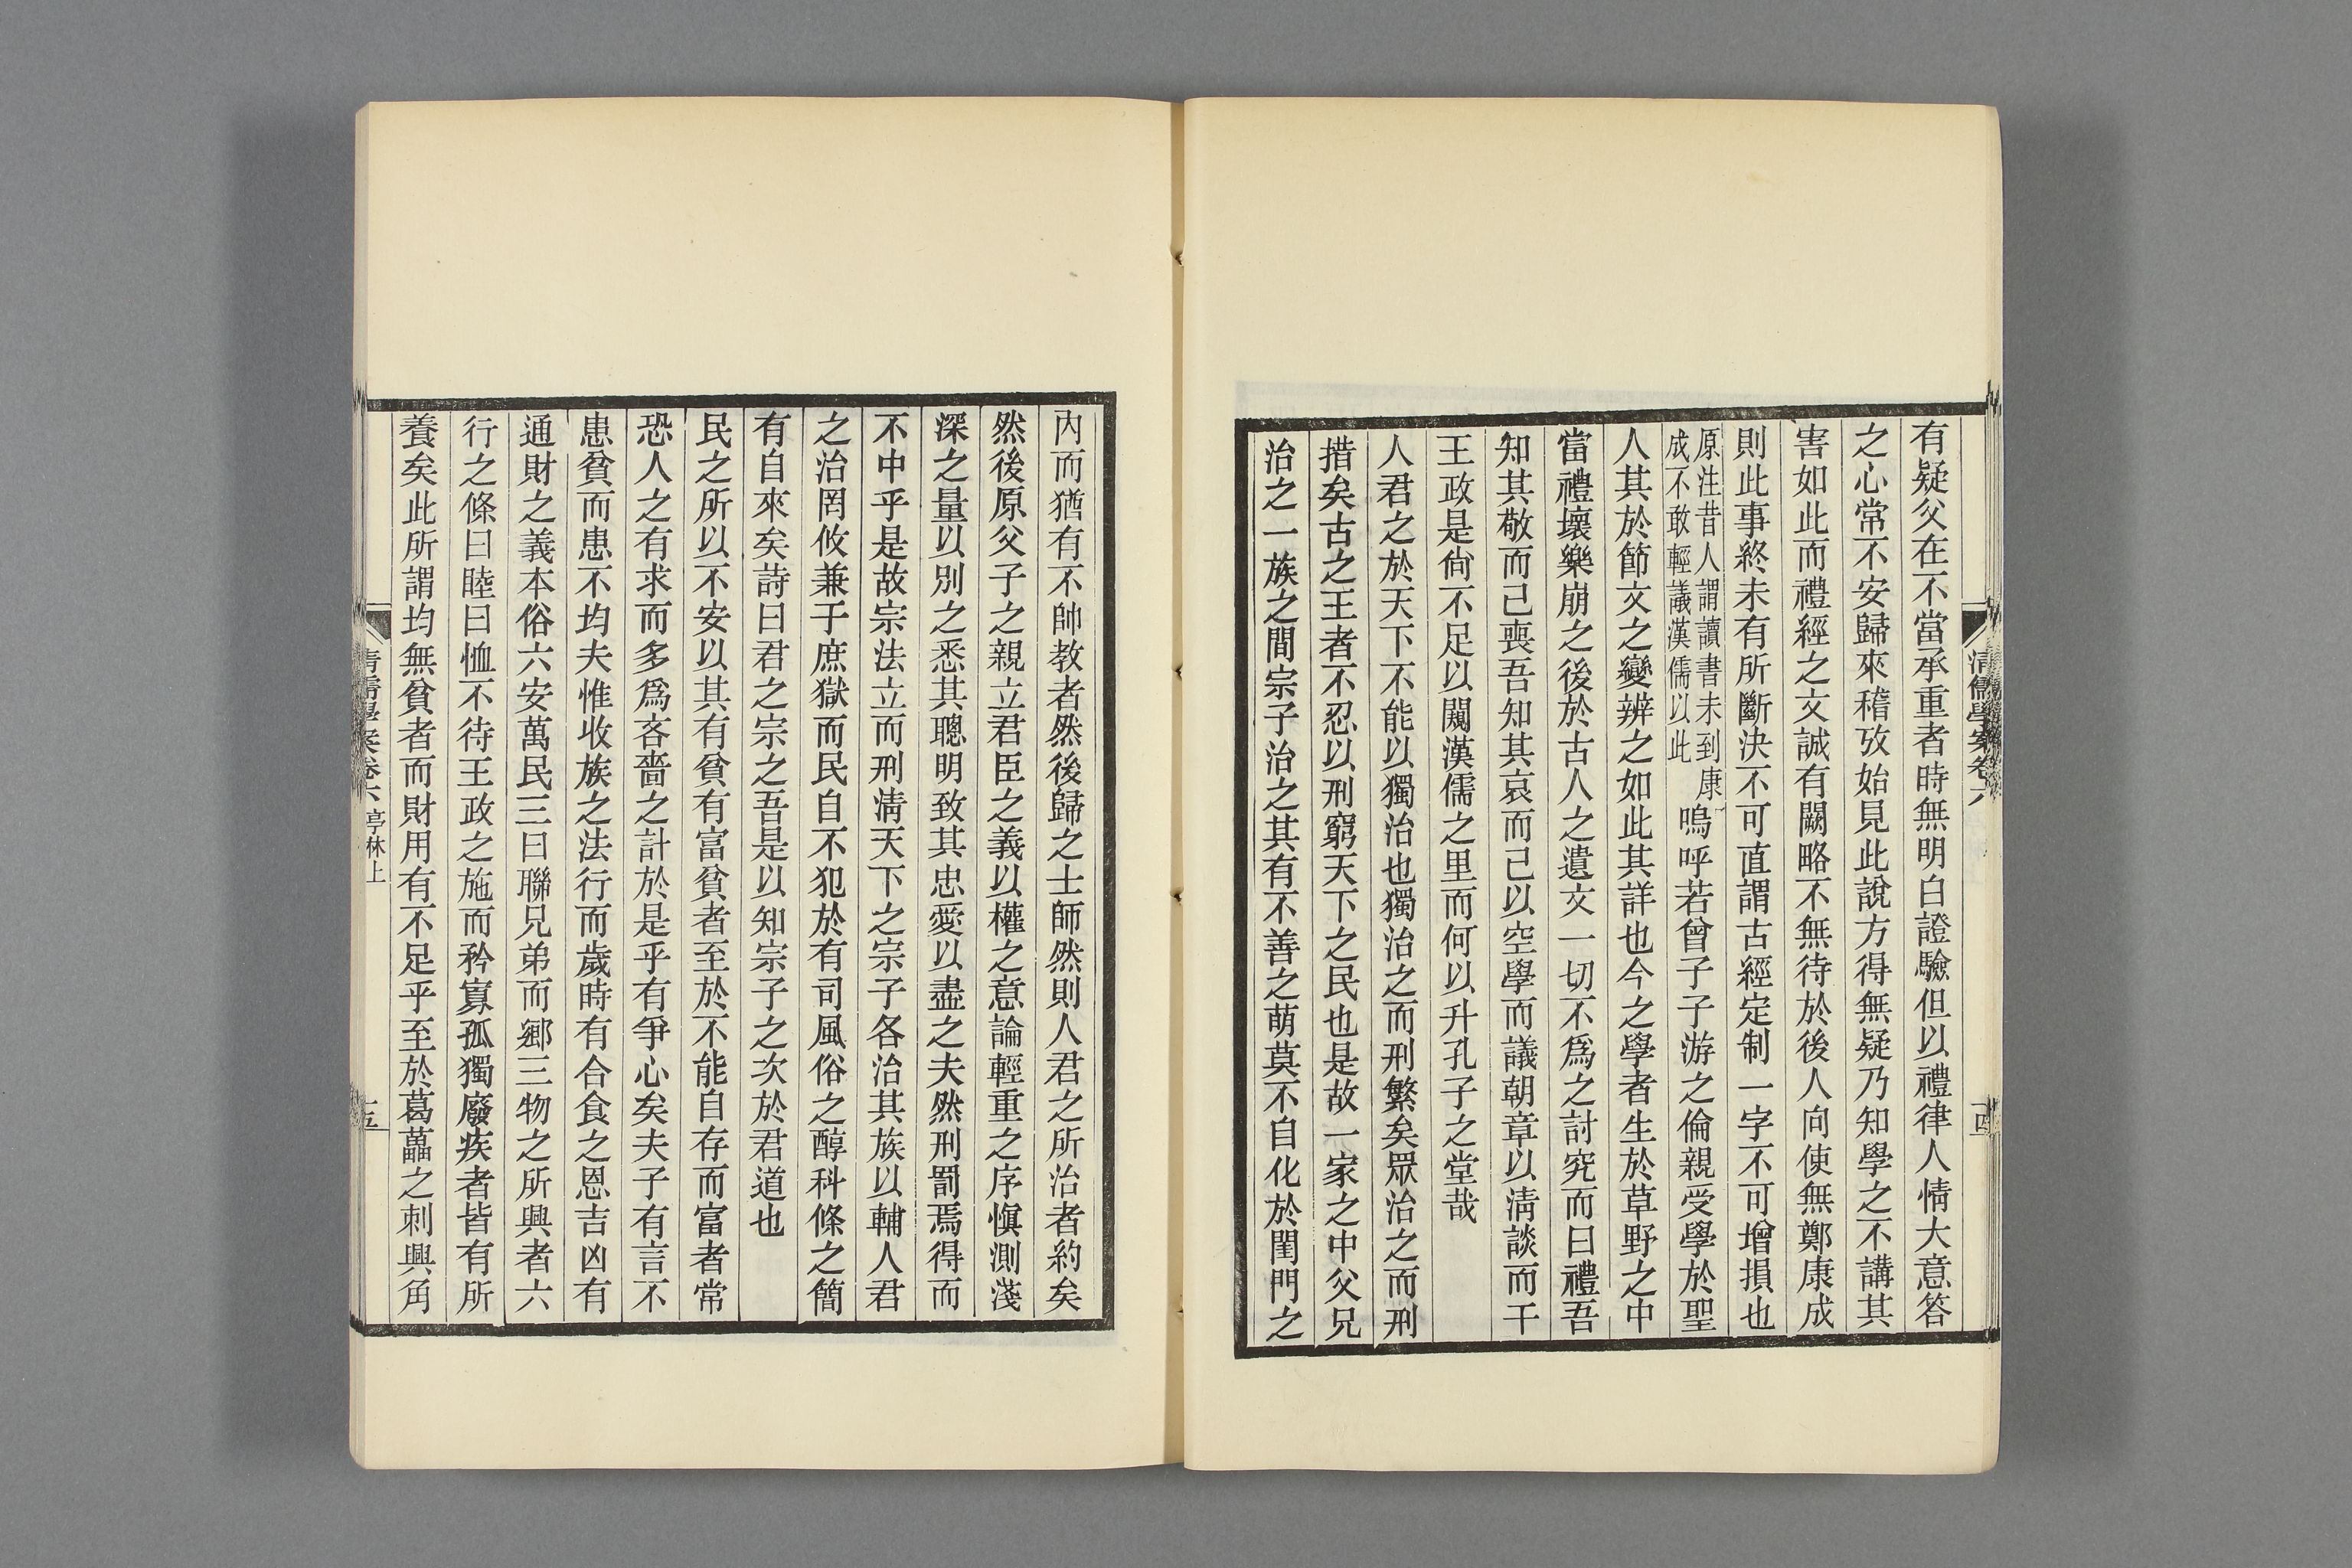 清儒學案卷六
十四
有疑父在不當承重者時無明白證驗但以禮律人情大意答
之心常不安歸來稽攷始見此說方得無疑乃知學之不講其
害如此而禮經之文誠有闕略不無待於後人向使無鄭康成
則此事終未有所斷決不可直謂古經定制一字不可增損也
原注昔人謂讀書未到康
成不敢輕議漢儒以此
嗚呼若曾子子游之倫親受學於聖
人其於節文之變辨之如此其詳也今之學者生於草野之中
當禮壞樂崩之後於古人之遺文一切不爲之討究而曰禮吾
知其敬而已喪吾知其哀而已以空學而議朝章以清談而干
王政是尙不足以闚漢儒之里而何以升孔子之堂哉
人君之於天下不能以獨治也獨治之而刑繁矣眾治之而刑
措矣古之王者不忍以刑窮天下之民也是故一家之中父兄
治之一族之間宗子治之其有不善之萌莫不自化於閨門之
內而猶有不帥教者然後歸之士師然則人君之所治者約矣
然後原父子之親立君臣之義以權之意論輕重之序愼測淺
深之量以別之悉其聰明致其忠愛以盡之夫然刑罰焉得而
不中乎是故宗法立而刑清天下之宗子各治其族以輔人君
之治罔攸兼于庶獄而民自不犯於有司風俗之醇科條之簡
有自來矣詩曰君之宗之吾是以知宗子之次於君道也
民之所以不安以其有貧有富貧者至於不能自存而富者常
恐人之有求而多爲吝嗇之計於是乎有爭心矣夫子有言不
患貧而患不均夫惟收族之法行而歲時有合食之恩吉凶有
通財之義本俗六安萬民三曰聯兄弟而鄉三物之所興者六
行之條曰睦曰恤不待王政之施而矜寡孤獨廢疾者皆有所
養矣此所謂均無貧者而財用有不足乎至於葛藟之刺興角
清儒學案卷六 亭林上
十五